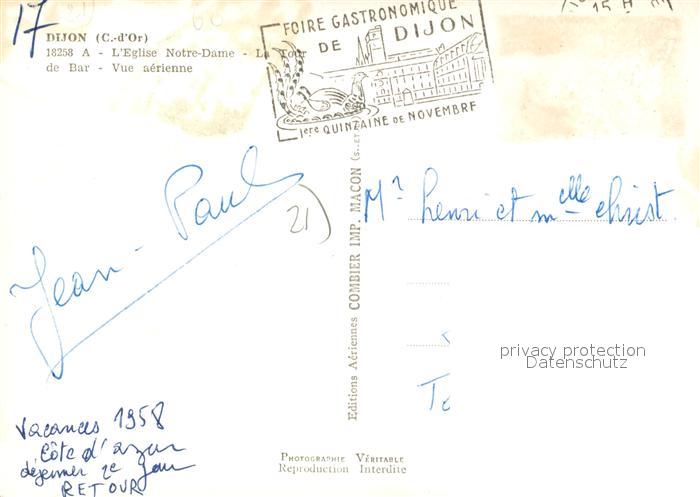 17
DIJON (C.-d'Or)
18258 A - L'Eglise Notre-Dame - La Tour
de Bar - Vue aérienne
FOIRE GASTRONOMIQUE
DE DIJON
1ere QUINZAINE DE NOVEMBRE
15 H
Jean-Paul
21
Editions Aériennes COMBIER IMP. MACON (S.-ET-
Mr henri et melle christ.
privacy protection
Datenschutz
Vacances 1958
Côte d'azur
déjeuner 2e jour
RETOUR
PHOTOGRAPHIE VÉRITABLE
Reproduction Interdite